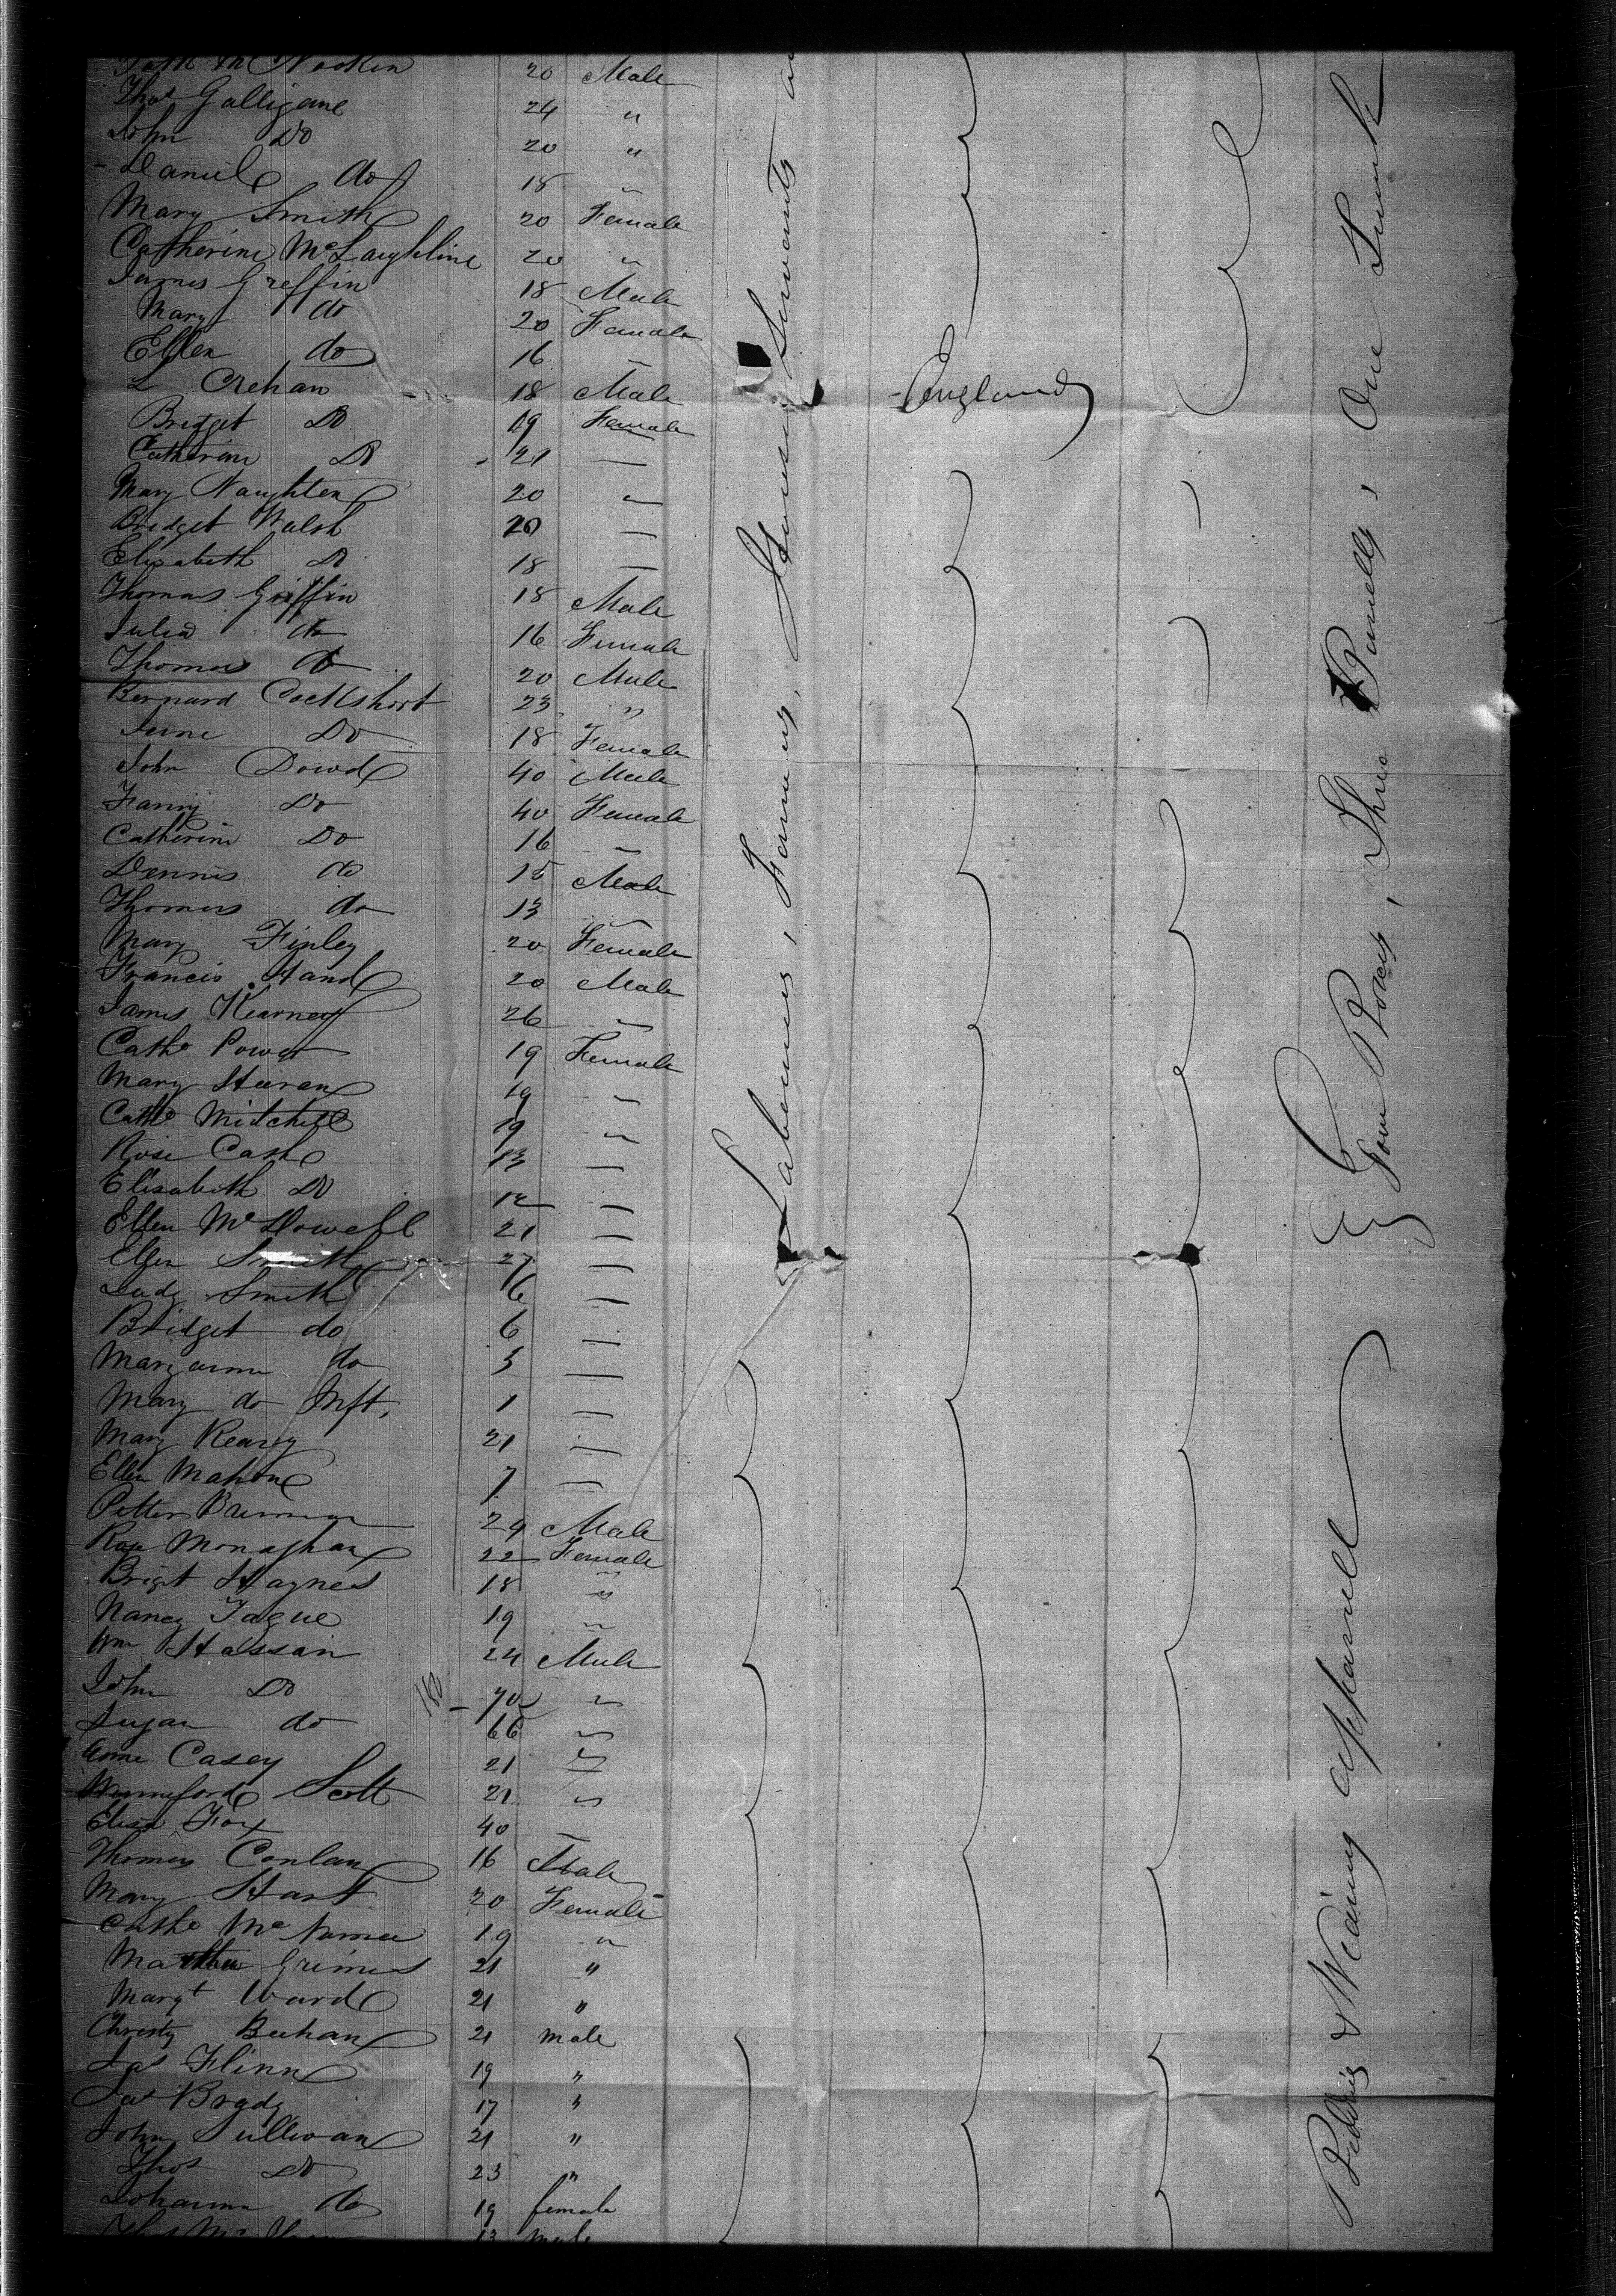 20 Male
Thos Galligane 24 "
John Do 20 "
Daniel do 18 "
Mary Smith 20 Female
Catherine McLaughline 20 "
James Greffin 18 Male
Mary do 20 Female
Ellen do 16 "
L Crehan 18 Male
Bridget Do 19 Female
Catherine Do 21 —
Mary Naughten 20 "
Bridget Walsh 20 —
Elizabeth Do 18 —
Thomas Griffin 18 Male
Julia do 16 Female
Thomas do 20 Male
Bernard Cockshott 23 "
Do 18 Female
John Dowd 40 Male
Fanny Do 40 Female
Catherine Do 16 —
Dennis do 15 Male
Thomas do 13 "
Mary Finley 20 Female
Francis Hand 20 Male
James Kearney 26 "
Cathe Power 19 Female
Mary Heeran 19 "
Cathe Mitchell 19 "
Rose Cash 13 —
Elisabeth Do 12 —
Ellen McDowell 21 —
Ellen Smith 27 —
Judy Smith 16 —
Bridget do 6 —
Maryanne do 3 —
Mary do Inft. 1 —
Mary Kearey 21 —
Ellen Mahon 7 —
Petter 24 Male
Rose Monaghan 22 Female
Briget Haynes 18 "
Nancy Tague 19 "
Wm Hassan 24 Male
John Do 70 "
do 66 "
Anne Casey 21 "
Scott 21 "
Eliza Fox 40 —
Thomas Conlan 16 Male
Mary Hart 20 Female
Cathe McNamee 19 "
Martha Grimes 21 "
Margt Ward 21 "
Christy Beehan 21 male
Jas Flinn 19 "
Jas Brady 17 "
John Sullivan 21 "
Thos Do 23 "
Johanna do 19 female
13 male
Labourers, Farmers, Servants
England
Four Boxes, Three Barrells, One Trunk
Bedding & Wearing apparell